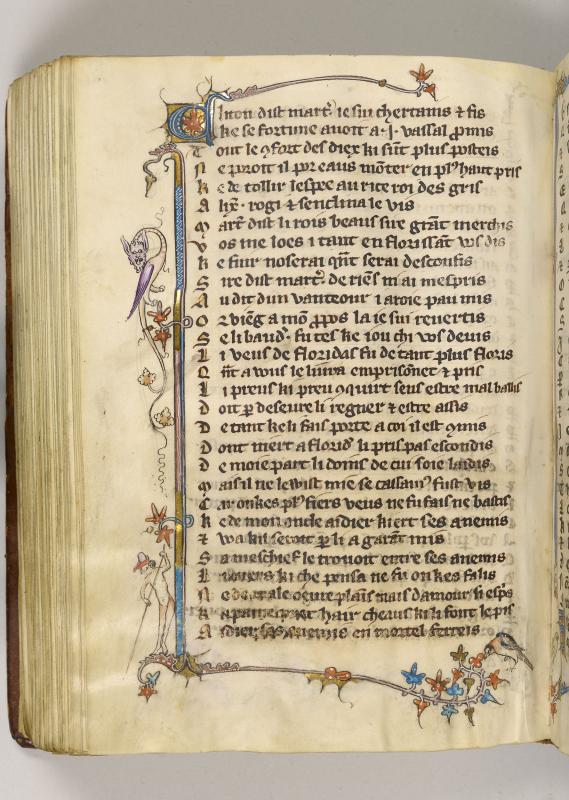 liton dist mart͛. ie sui chertains ⁊ fis
ke se fortune auoit a . j . vassal ꝓmis
Tout le ꝯfort des diex ki sūt plus posteis
Ne poroit il por eaus mōter en plꝰ haut pris
Ke de tollir lespee au rice roi des gris
A rogi ⁊ senclina le vis
Mart͛ dist li rois beaus sire grāt merchis
Vos me loes i tant en florissāt vos dis
Ke fuir noserai qn̄t serai desconfis
Sire dist mart͛. de riēs mai mespris
Au dit dun vanteour i aroie pau mis
Or viēg a mō ꝓpos la ie sui reuertis
Se li baud͛. fu tes ke iou chi vos deuis
Li veus de floridas fu de tant plus floris
Qn̄t a vous le liura emprisōnet ⁊ pris
Li preus ki preu ꝯquirt seus estre mal baillis
Doit ꝑ deseure li regner ⁊ estre assis
De tant ke li fais porte a coi il est ꝯmis
Dont mert a florid͛ li pris pas escondis
De moie part li donis de cui soie laidis
Mais il ne leuist mie se caissanꝰ fust vis
Car onkes plꝰ fiers veus ne fu fais ne bastis
Ke de mon oncle aidier kiert ses anemis
⁊ wa kil seroit ꝑ li a garāt mis
Sa meschief le trouoit entre ses anemis
ki che pensa ne fu onkes falis
Ne de tale oeure plaīs mais damour
Ka paine hair cheaus ki li font le pis
Aidier ses anemis en mortel fereis